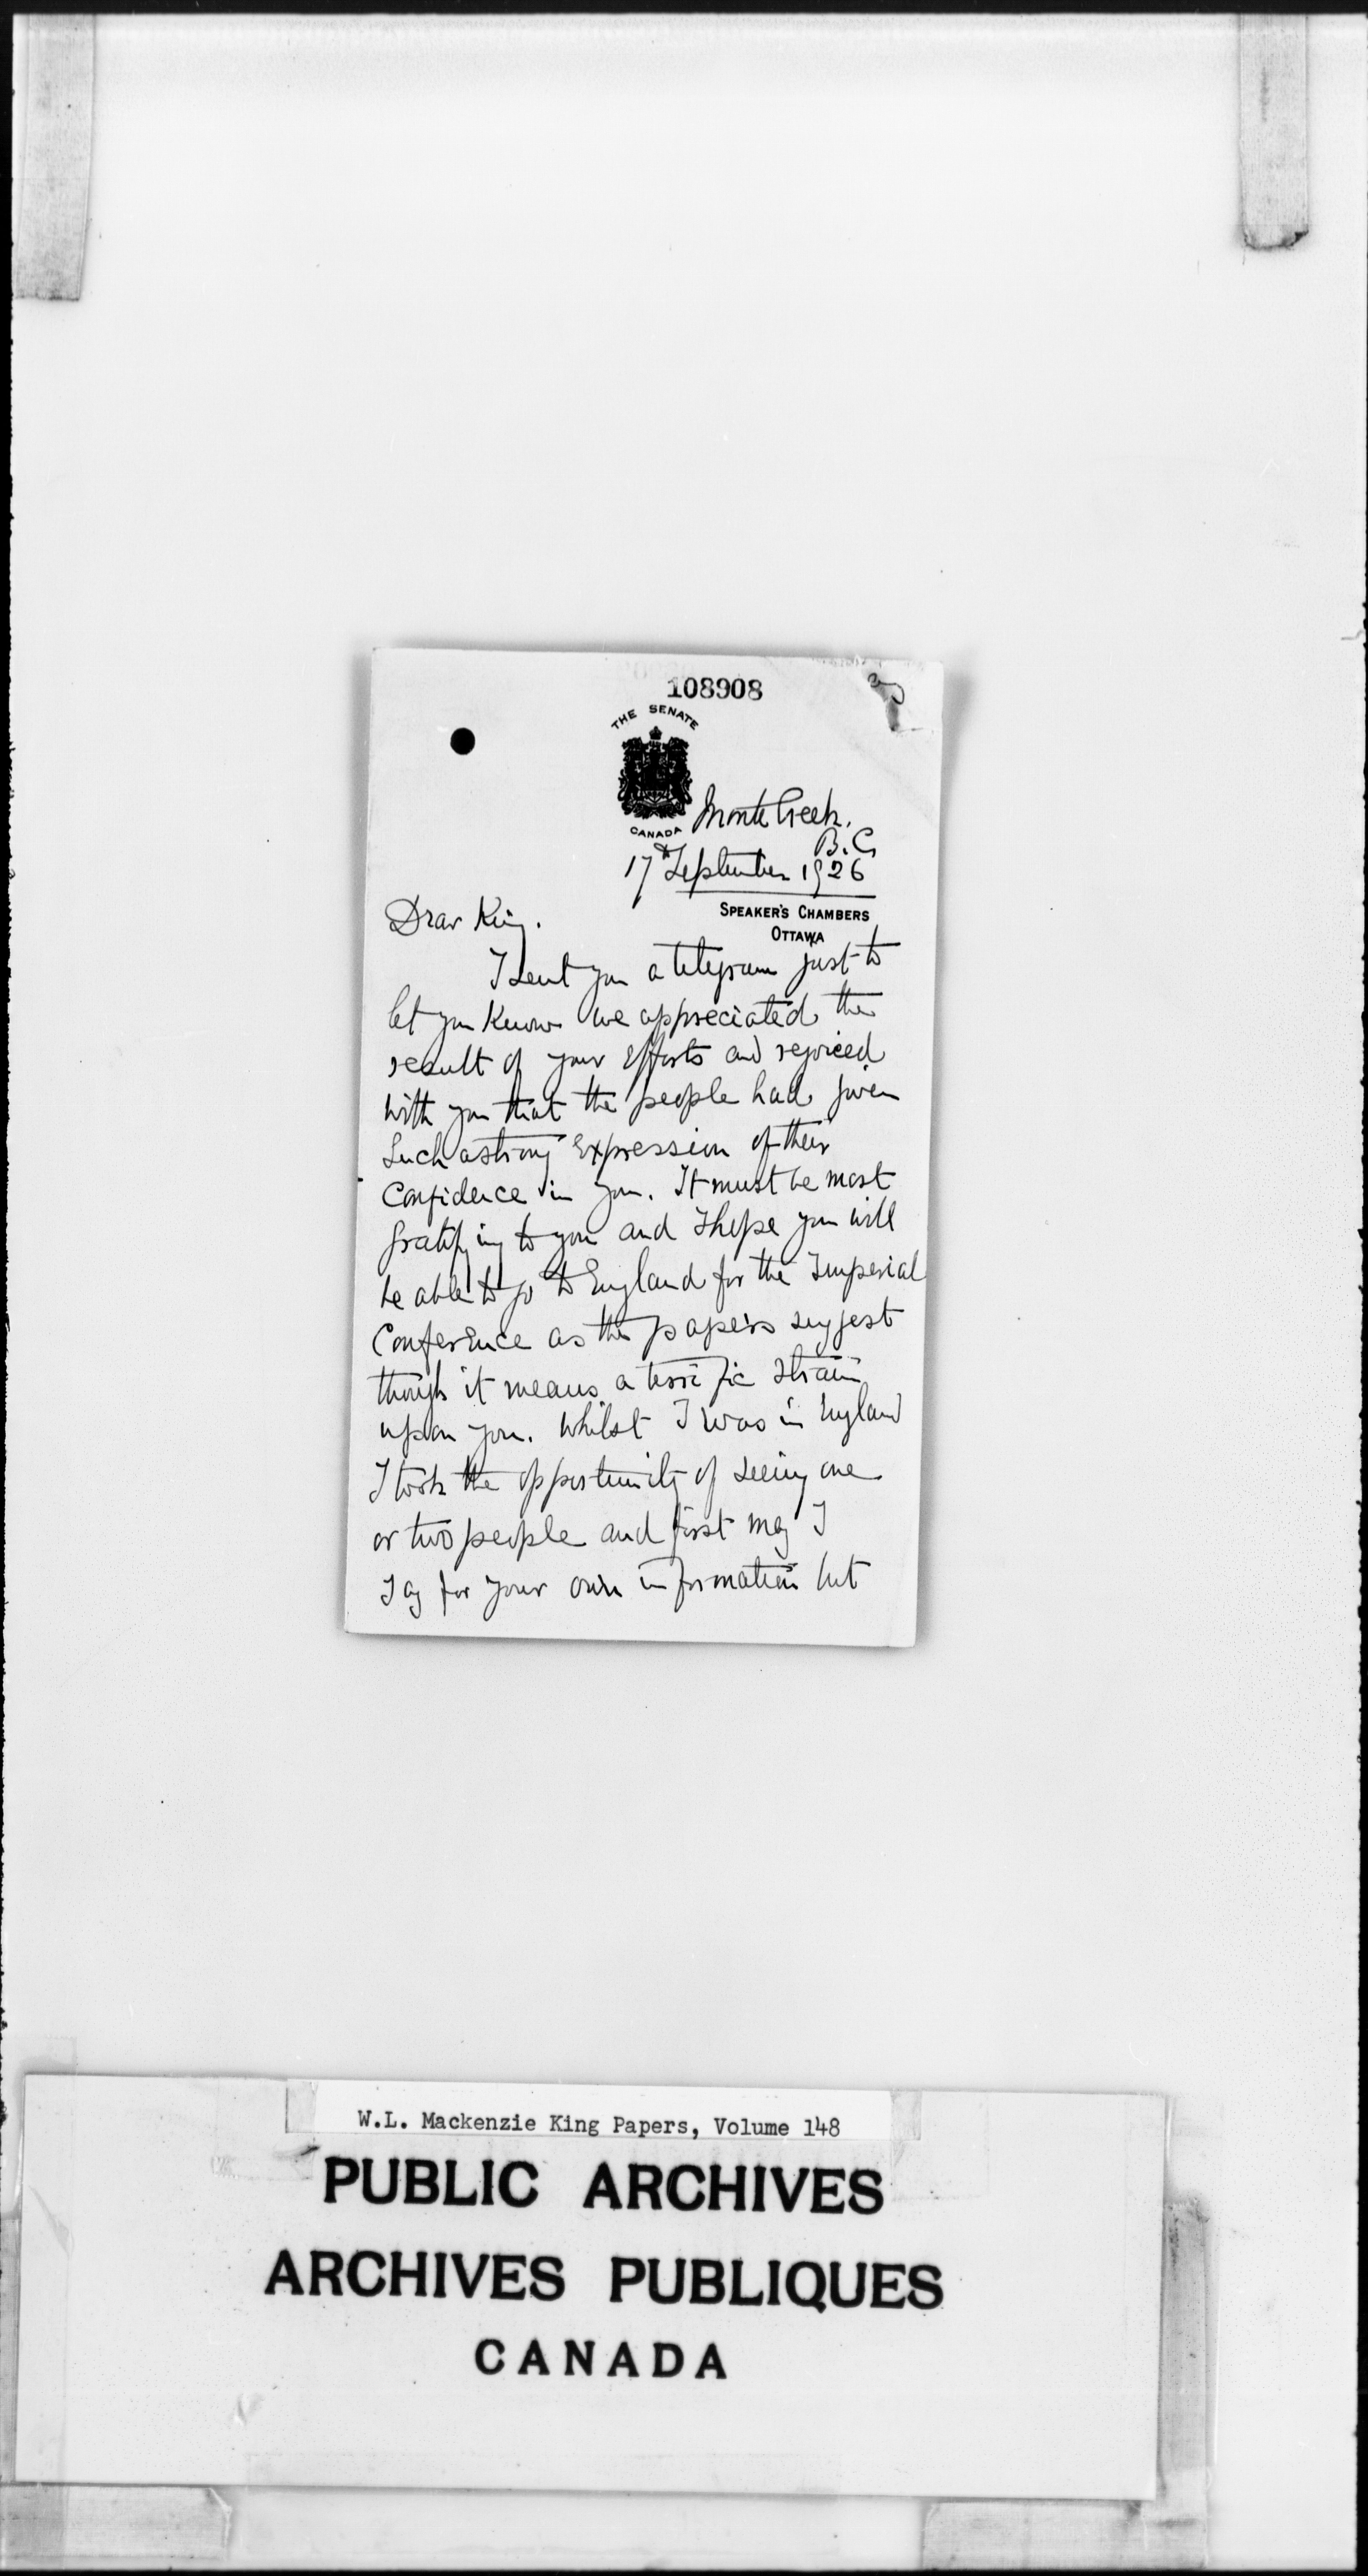 108908
THE SENATE
CANADA
Monte Creek.
B.C.
17th September 1926
SPEAKER'S CHAMBERS
OTTAWA
Dear King.
I sent you a telegram just to
let you know we appreciated the
result of your efforts and rejoiced
with you that the people had given
such a strong expression of their
confidence in you. It must be most
gratifying to you and I hope you will
be able to go to England for the Imperial
Conference as the papers suggest
though it means a terrific strain
upon you. Whilst I was in England
I took the opportunity of seeing one
or two people and first may I
say for your own information but
W.L. Mackenzie King Papers, Volume 148
PUBLIC ARCHIVES
ARCHIVES PUBLIQUES
CANADA